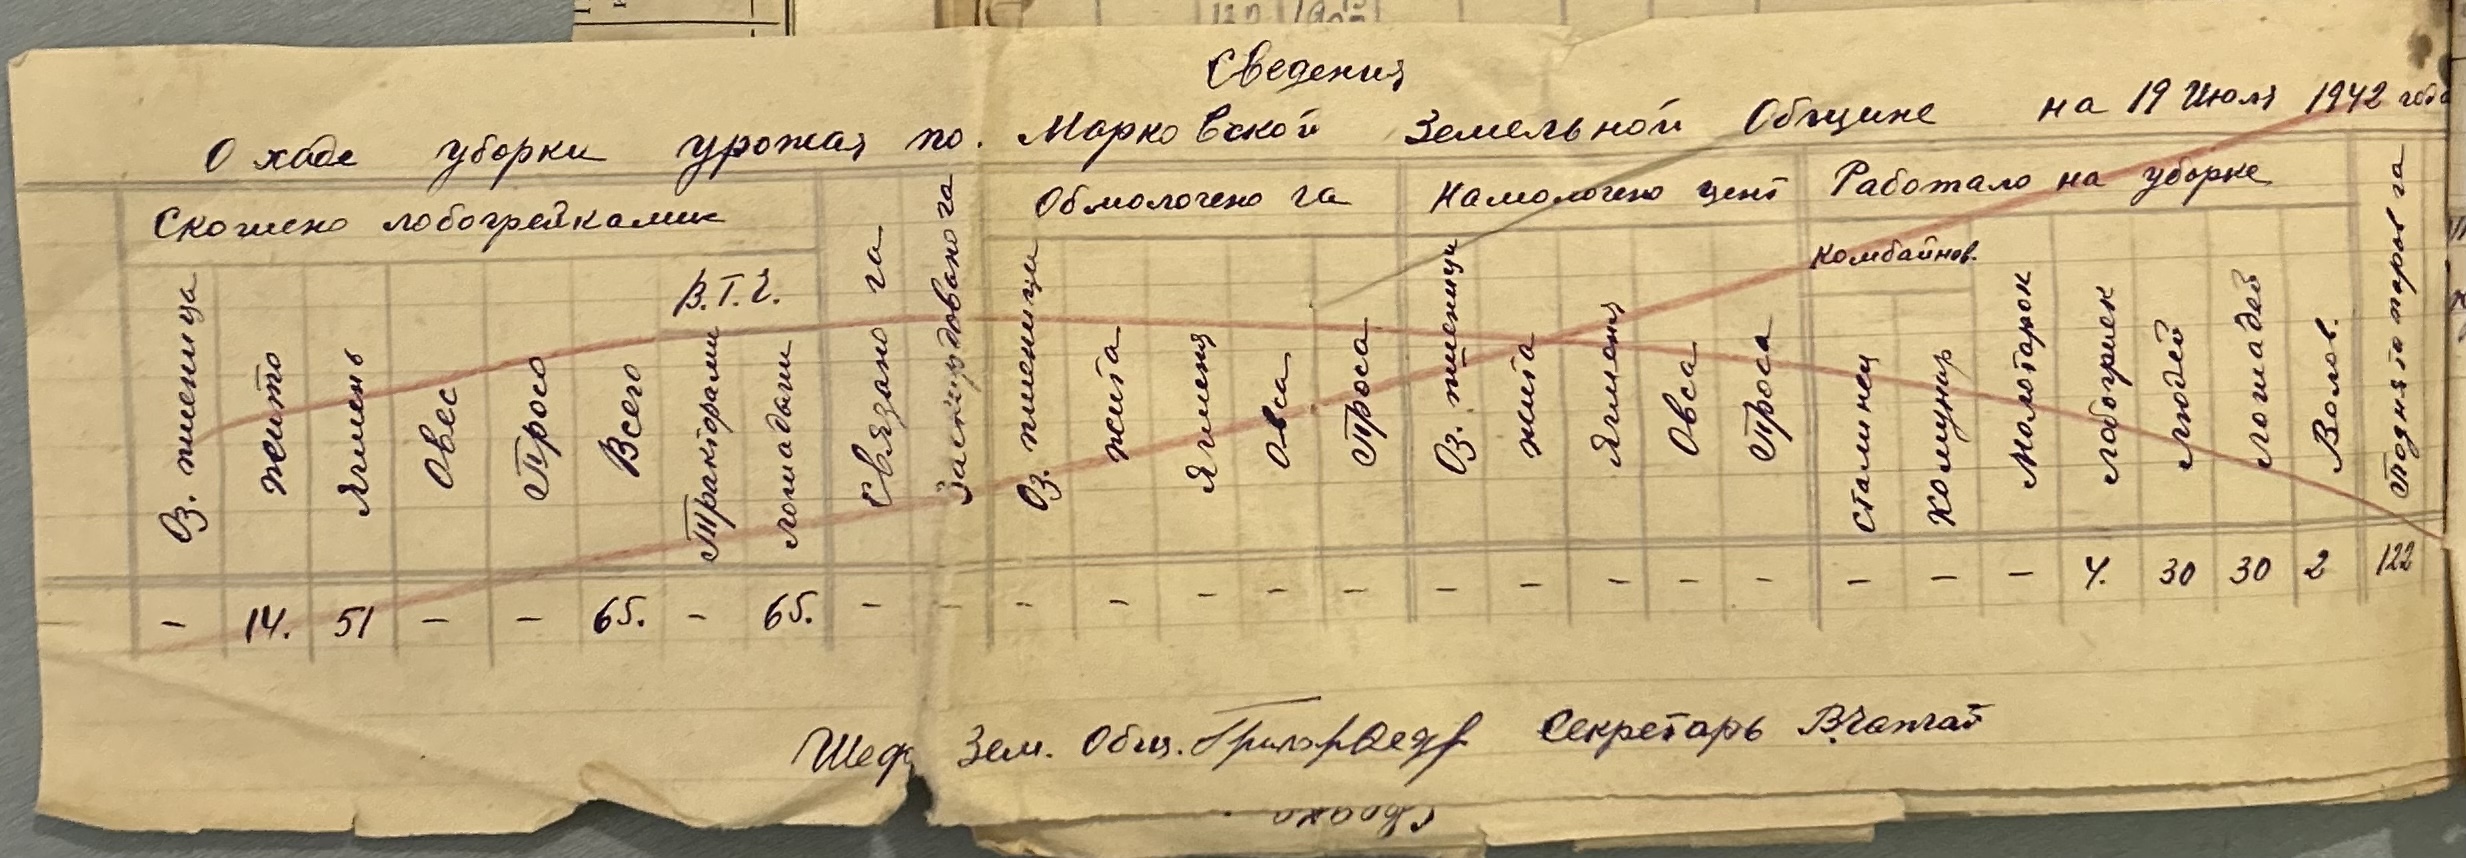 Сведения
О ходе уборки урожая по. Марковской Земельной Общине на 19 Июля 1942 года
Скошено лобогрейками
Связано га
Заскирдовано га
Обмолочено га
Намолочено цент
Работало на уборке
Поднято паров га
Оз. пшеница
Жито
Ячмень
Овес
Просо
Всего
В.Т.Ч.
Тракторами
лошадьми
Оз. пшеници
жита
Ячменя
Овса
Проса
Оз. пшеници
жита
Ячменя
Овса
Проса
Комбайнов.
Сталинец
Комунар
Молотарок
Лобогриек
Людей
Лошадей
Волов.
- 14. 51 - - 65. - 65. - - - - - - - - - - - - - - - 4. 30 30 2 122
Шеф Зем. Общ. Секретарь